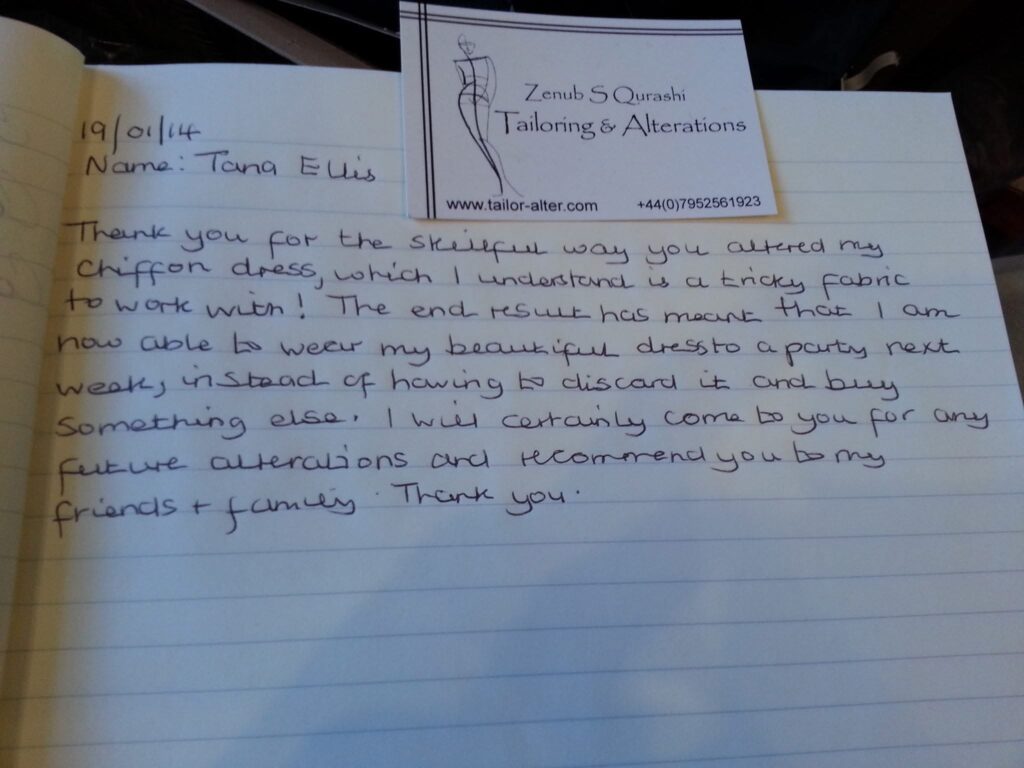 Zenub S Qurashi
Tailoring & Alterations
www.tailor-alter.com +44(0)7952561923
19/01/14
Name: Tana Ellis
Thank you for the skillful way you altered my
chiffon dress, which I understand is a tricky fabric
to work with! The end result has meant that I am
now able to wear my beautiful dress to a party next
week, instead of having to discard it and buy
something else. I will certainly come to you for any
future alterations and recommend you to my
friends + family. Thank you.